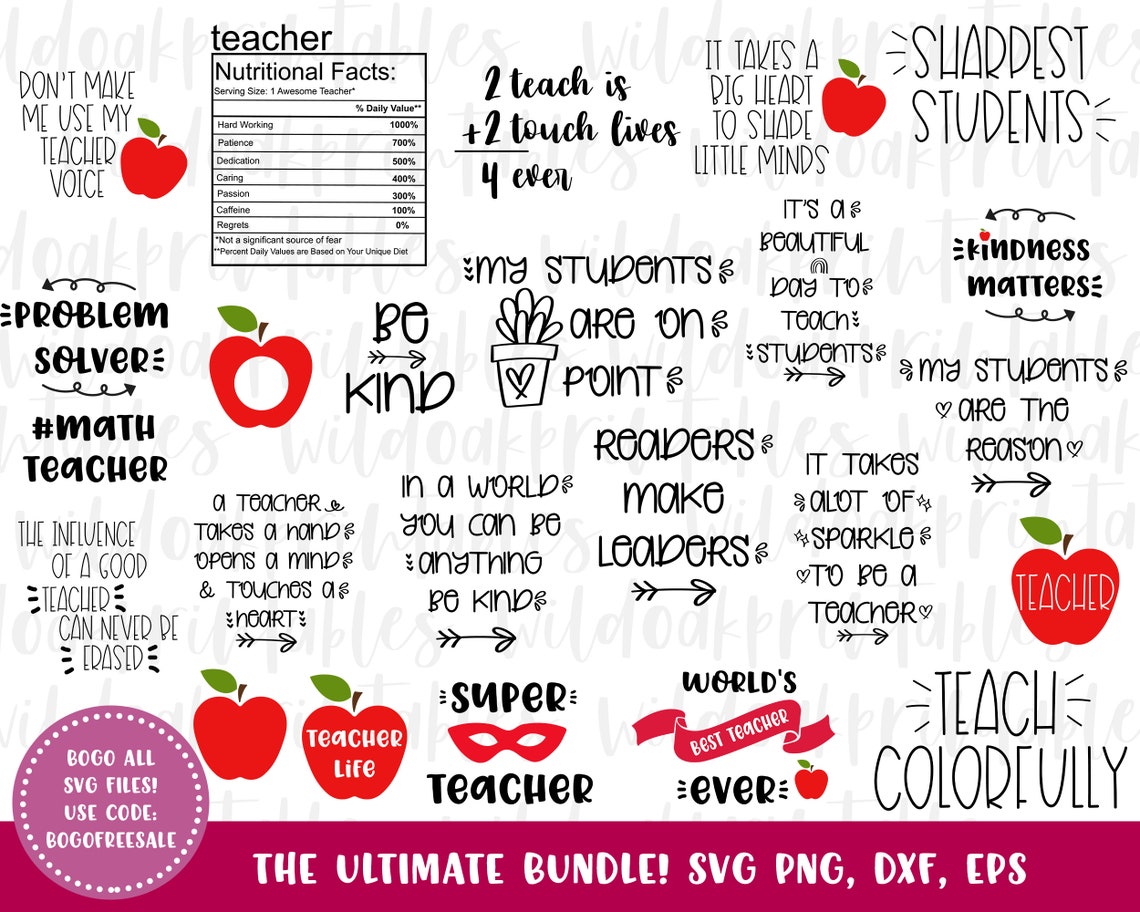 DON'T MAKE
ME USE MY
TEACHER
VOICE
teacher
Nutritional Facts:
Serving Size: 1 Awesome Teacher*
% Daily Value**
Hard Working 1000%
Patience 700%
Dedication 500%
Caring 400%
Passion 300%
Caffeine 100%
Regrets 0%
*Not a significant source of fear
**Percent Daily Values are Based on Your Unique Diet
2 teach is
+2 touch lives
4 ever
IT TAKES A
BIG HEART
TO SHAPE
LITTLE MINDS
SHARPEST
STUDENTS
PROBLEM
SOLVER
#MATH
TEACHER
BE
KIND
MY STUDENTS
ARE ON
POINT
IT'S A
BEAUTIFUL
DAY TO
TEACH
STUDENTS
KINDNESS
MATTERS
MY STUDENTS
ARE THE
REASON
THE INFLUENCE
OF A GOOD
TEACHER
CAN NEVER BE
ERASED
A TEACHER
TAKES A HAND
OPENS A MIND
& TOUCHES A
HEART
IN A WORLD
YOU CAN BE
ANYTHING
BE KIND
READERS
MAKE
LEADERS
IT TAKES
ALOT OF
SPARKLE
TO BE A
TEACHER
TEACHER
TEACHER
LIFE
SUPER
TEACHER
WORLD'S
BEST TEACHER
EVER
TEACH
COLORFULLY
BOGO ALL
SVG FILES!
USE CODE:
BOGOFREESALE
THE ULTIMATE BUNDLE! SVG PNG, DXF, EPS
wildoakprintables